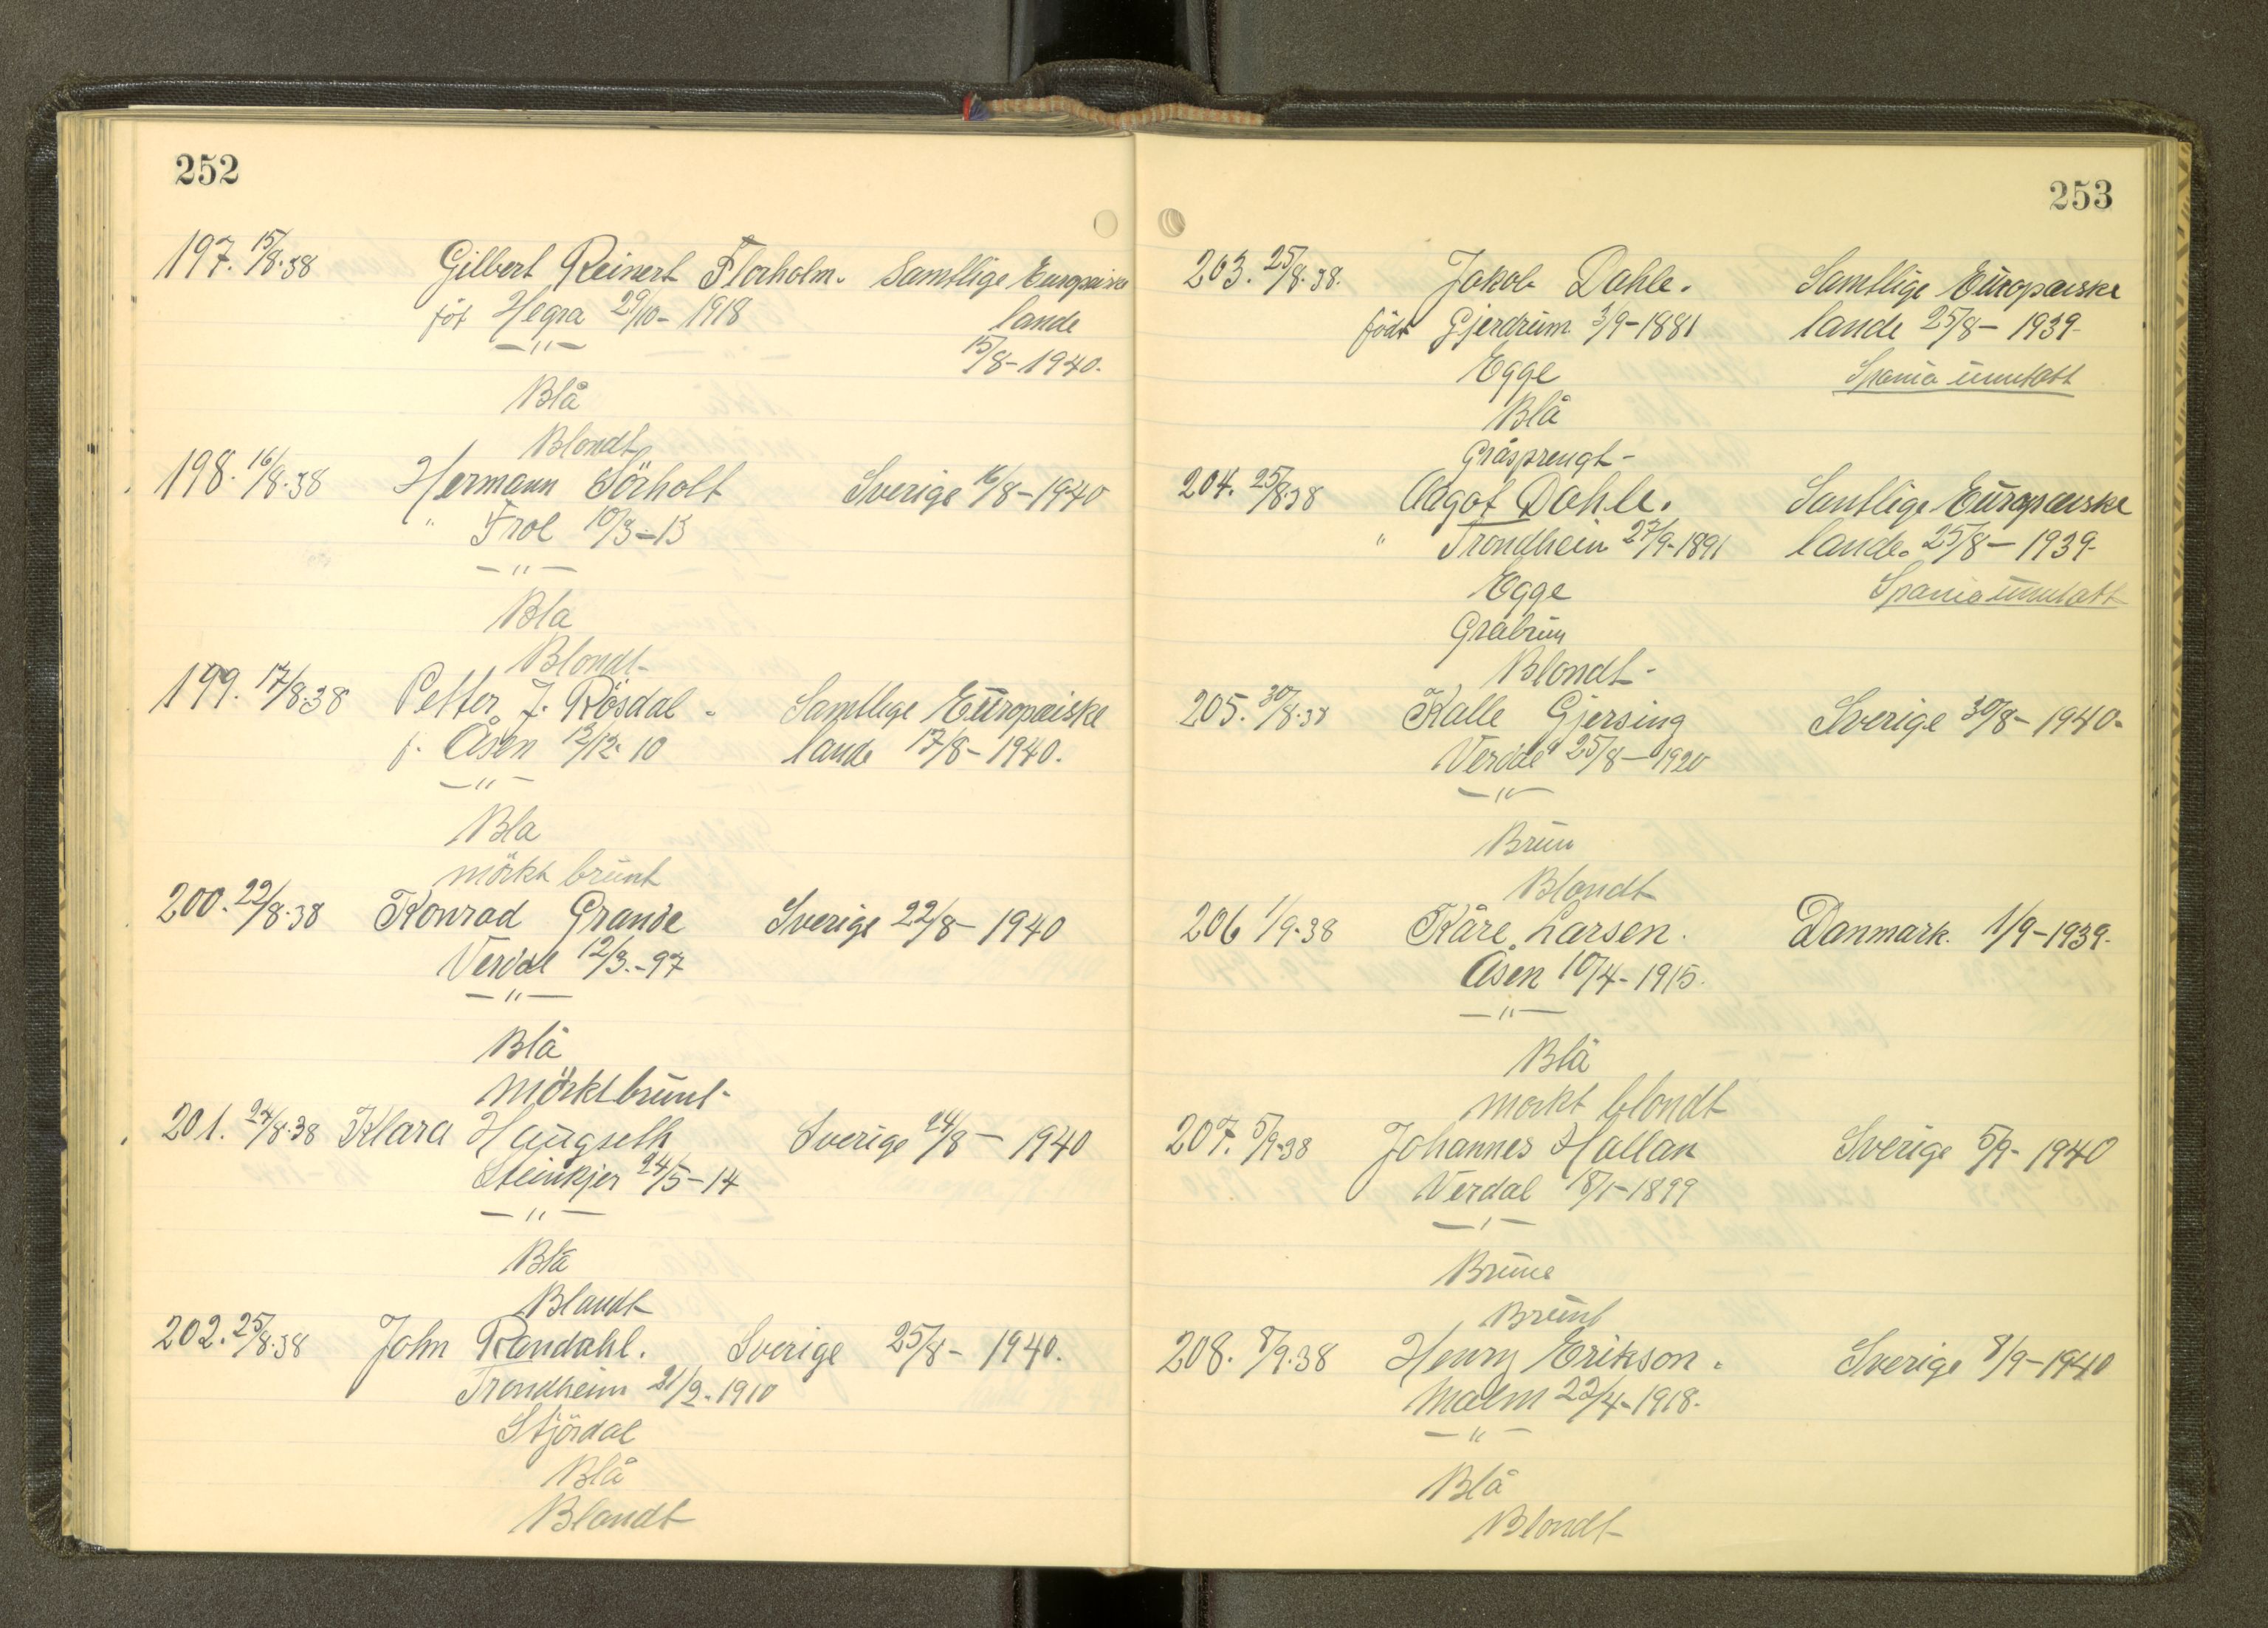 252
197. 15/8-38 Gilbert Reinert Florholm. Samtlige Europæiske
föt Hegra 29/10- 1918 lande
—"— 15/8-1940.
Blå
Blondt
198. 16/8-38 Hermann Sörholt Sverige 16/8-1940
" Frol 10/3-13
—"—
Bla
Blondt-
199. 17/8-38 Petter J. Rösdal - Samtlige Europæiske
f. Åsen 12/12-10 lande 17/8-1940.
—"—
Bla
mörkt brunt
200. 22/8-38 Konrad Grande Sverige 22/8-1940
Verdal 12/3.-97
—"—
Blå
Mörkt brunt-
201. 24/8-38 Klara Haugseth Sverige 24/8-1940
Steinkjer 24/5-14
—"—
Blå
Blondt
202. 25/8-38 John Randahl. Sverige 25/8- 1940.
Trondheim 21/2-1910
Stjördal
Blå
Blondt
253
203. 25/8-38. Jakob Dahle. Samtlige Europæiske
födt Gjerdrum 3/9-1881 lande 25/8-1939-
Egge Spania unntatt
Blå
Gråsprengt-
204. 25/8-38 Aagot Dahle. Samtlige Europæiske
" Trondheim 27/9-1891 lande. 25/8-1939-
Egge Spania unntatt
Gråbrun
Blondt-
205. 30/8-38 Kalle Gjersing Sverige 30/8-1940-
Verdal 25/8-1920
—"—
Brun
Blondt
206 1/9-38 Kåre Larsen. Danmark. 1/9-1939.
Åsen 10/4-1915.
—"—
Blå
mörkt blondt
207. 5/9-38 Johannes Hallan Sverige 5/9-1940
Verdal 18/1-1899
—"—
Brune
Brunt
208. 8/9-38 Henry Erikson. Sverige 8/9-1940
Malm 22/4-1918.
—"—
Blå
Blondt